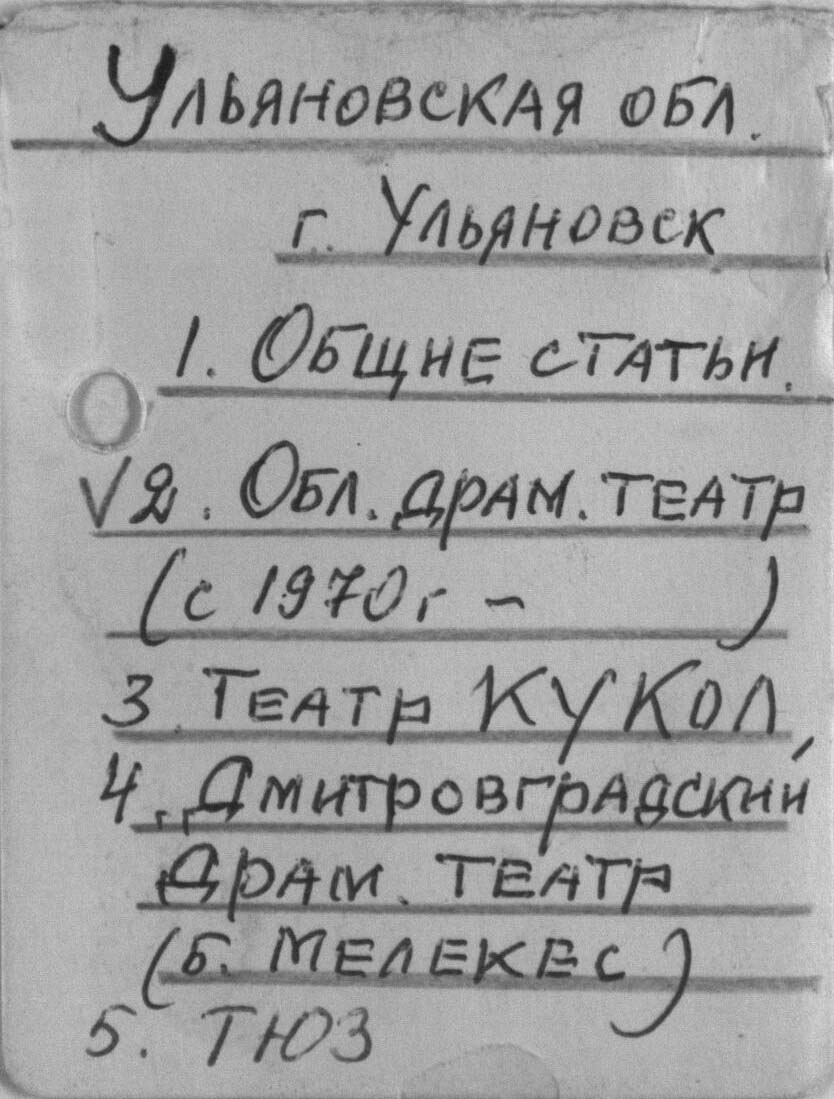 Ульяновская обл.
г. Ульяновск
1. Общие статьи.
√2. Обл. драм. театр
(с 1970г - )
3 Театр КУКОЛ
4. Дмитровградский
Драм. театр
(б. Мелекес)
5. ТЮЗ